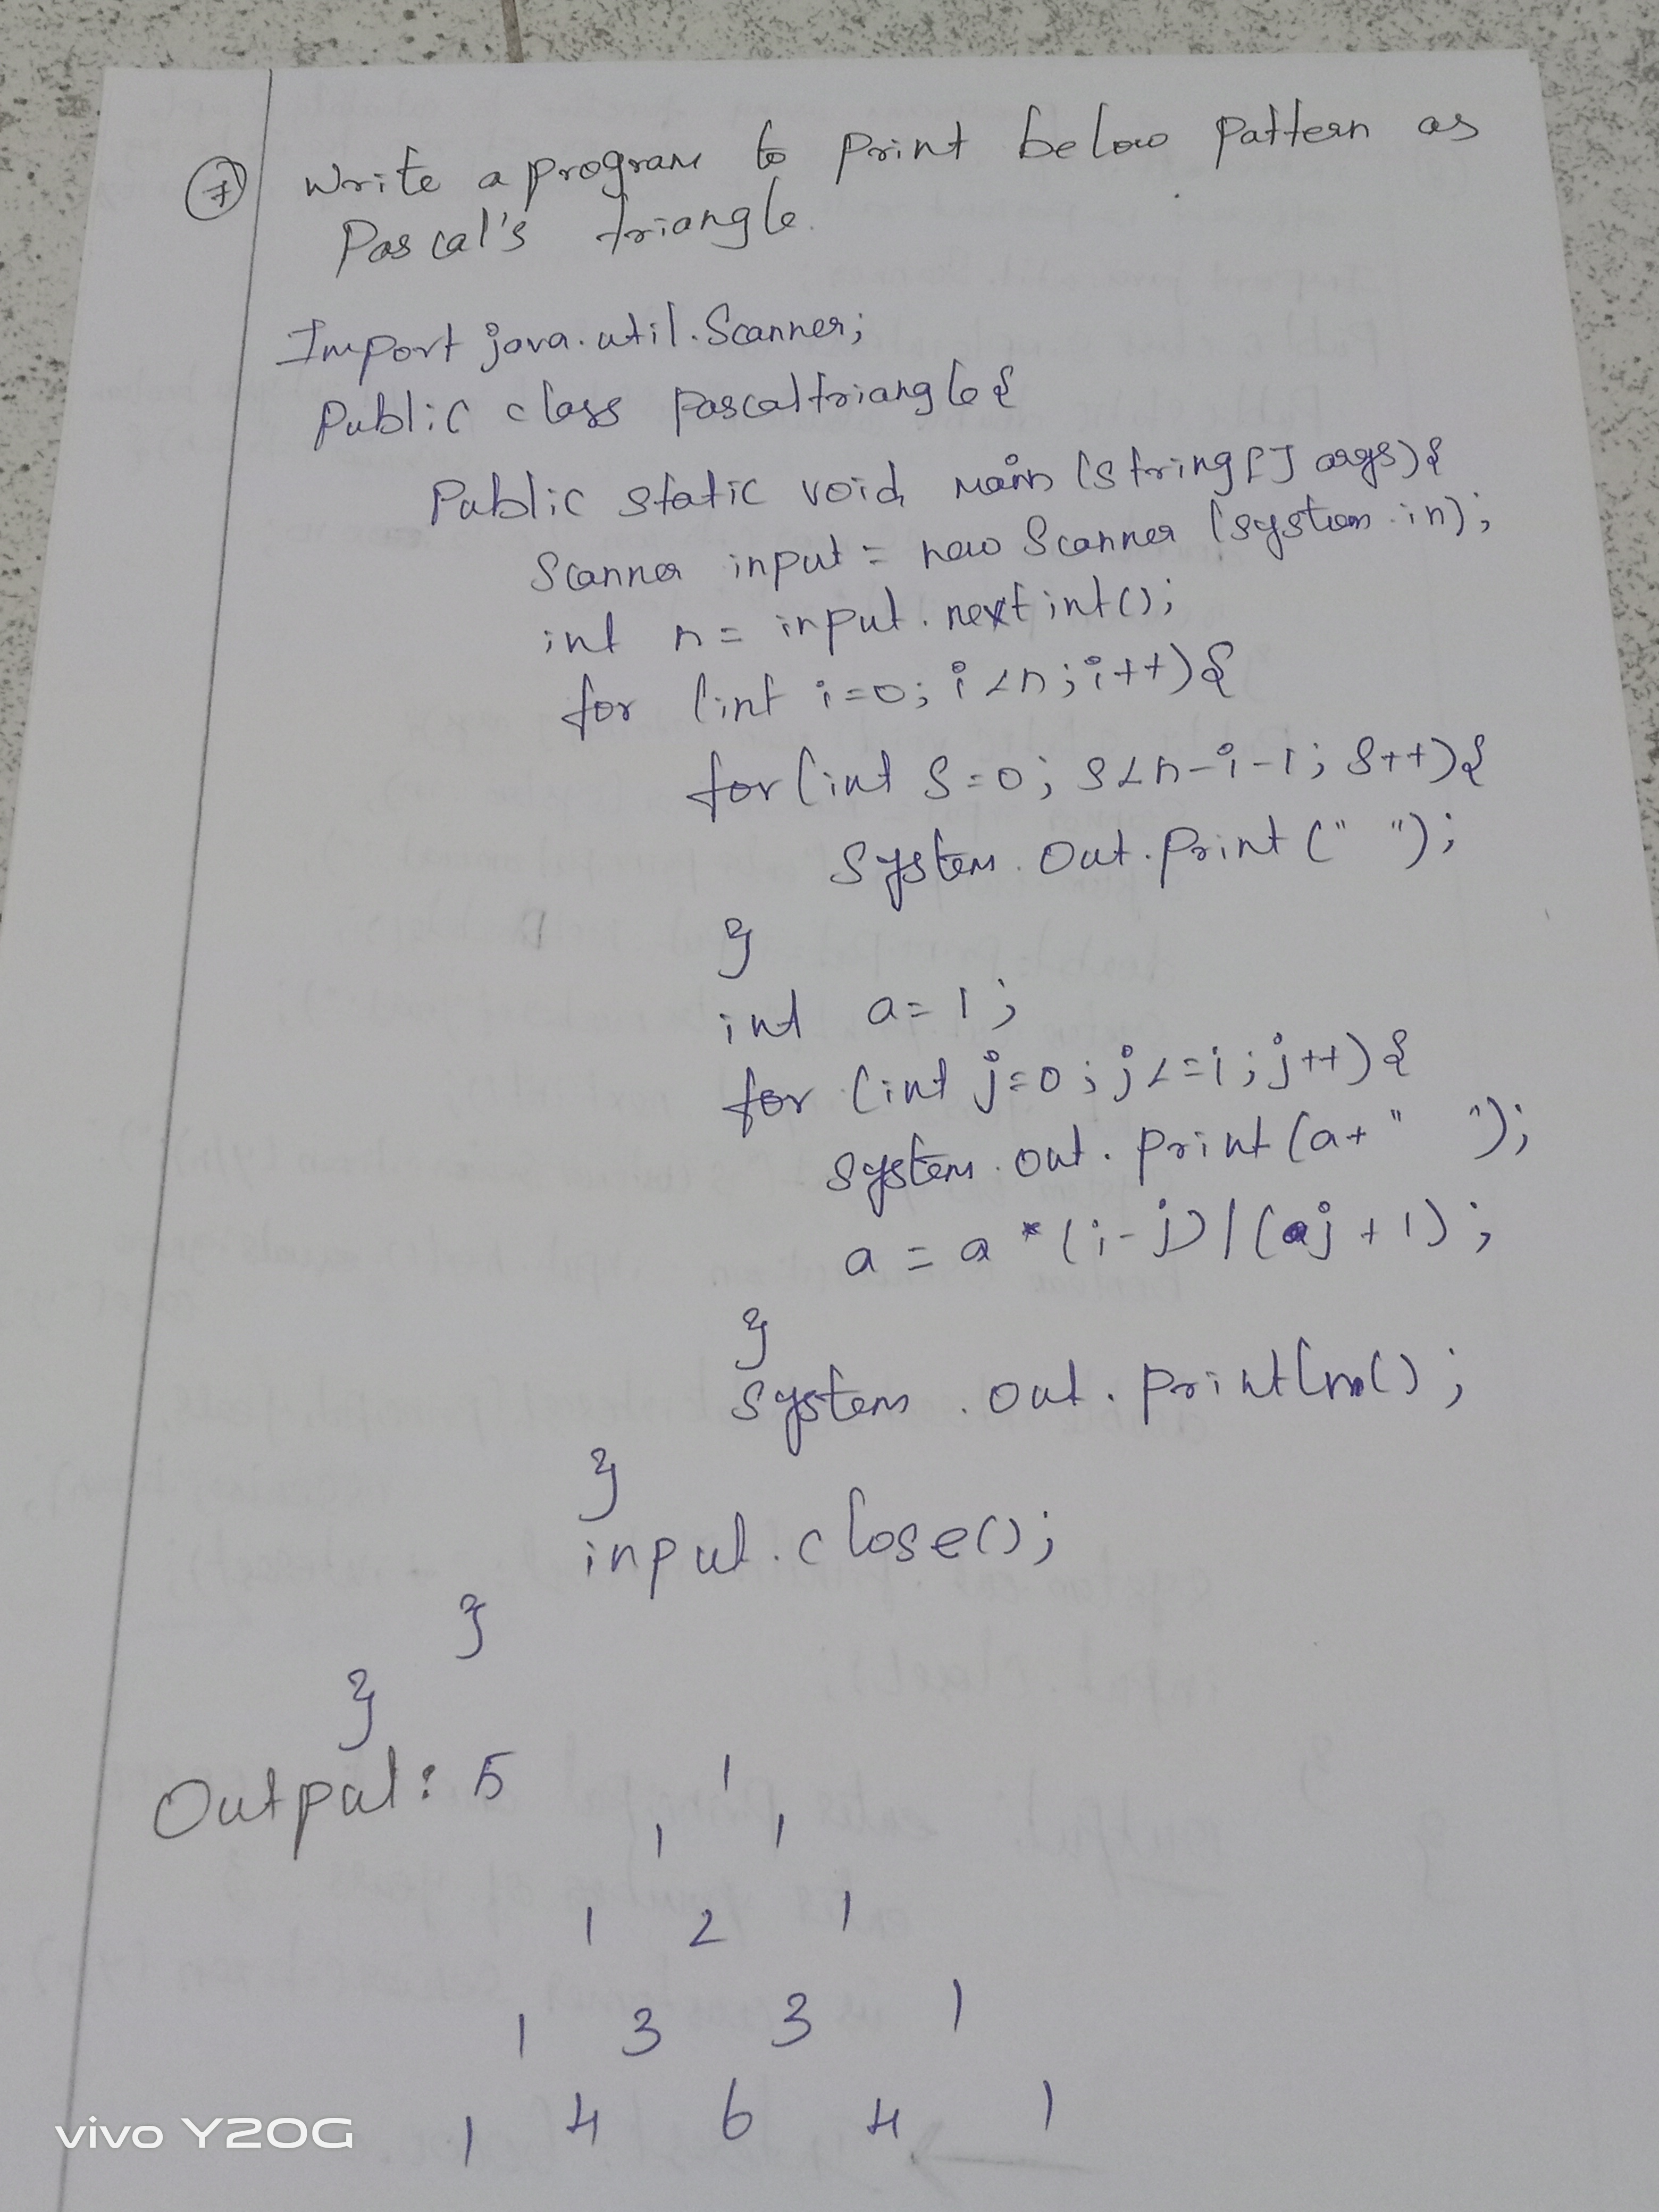 7 Write a program to print below pattern as
Pascal's triangle.
Import java.util.Scanner;
Public class pascaltriangle{
Public static void main (string[] args){
Scanner input = new Scanner (system.in);
int n = input.nextint();
for (int i=0; i<n; i++){
for(int s=0; s<n-i-1; s++){
System.out.print(" ");
}
int a=1;
for (int j=0; j<=i; j++){
system.out.print(a+" ");
a = a*(i-j)/(j+1);
}
System.out.println();
}
input.close();
}
}
Output: 5
1
1 1
1 2 1
1 3 3 1
1 4 6 4 1
vivo Y20G